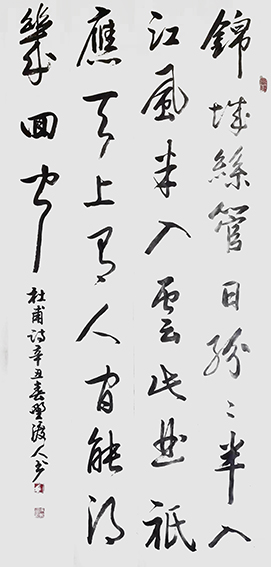 錦城絲管日紛〻半入
江風半入雲此曲祇
應天上有人间能得
幾回闻
杜甫诗辛丑春野渡人书